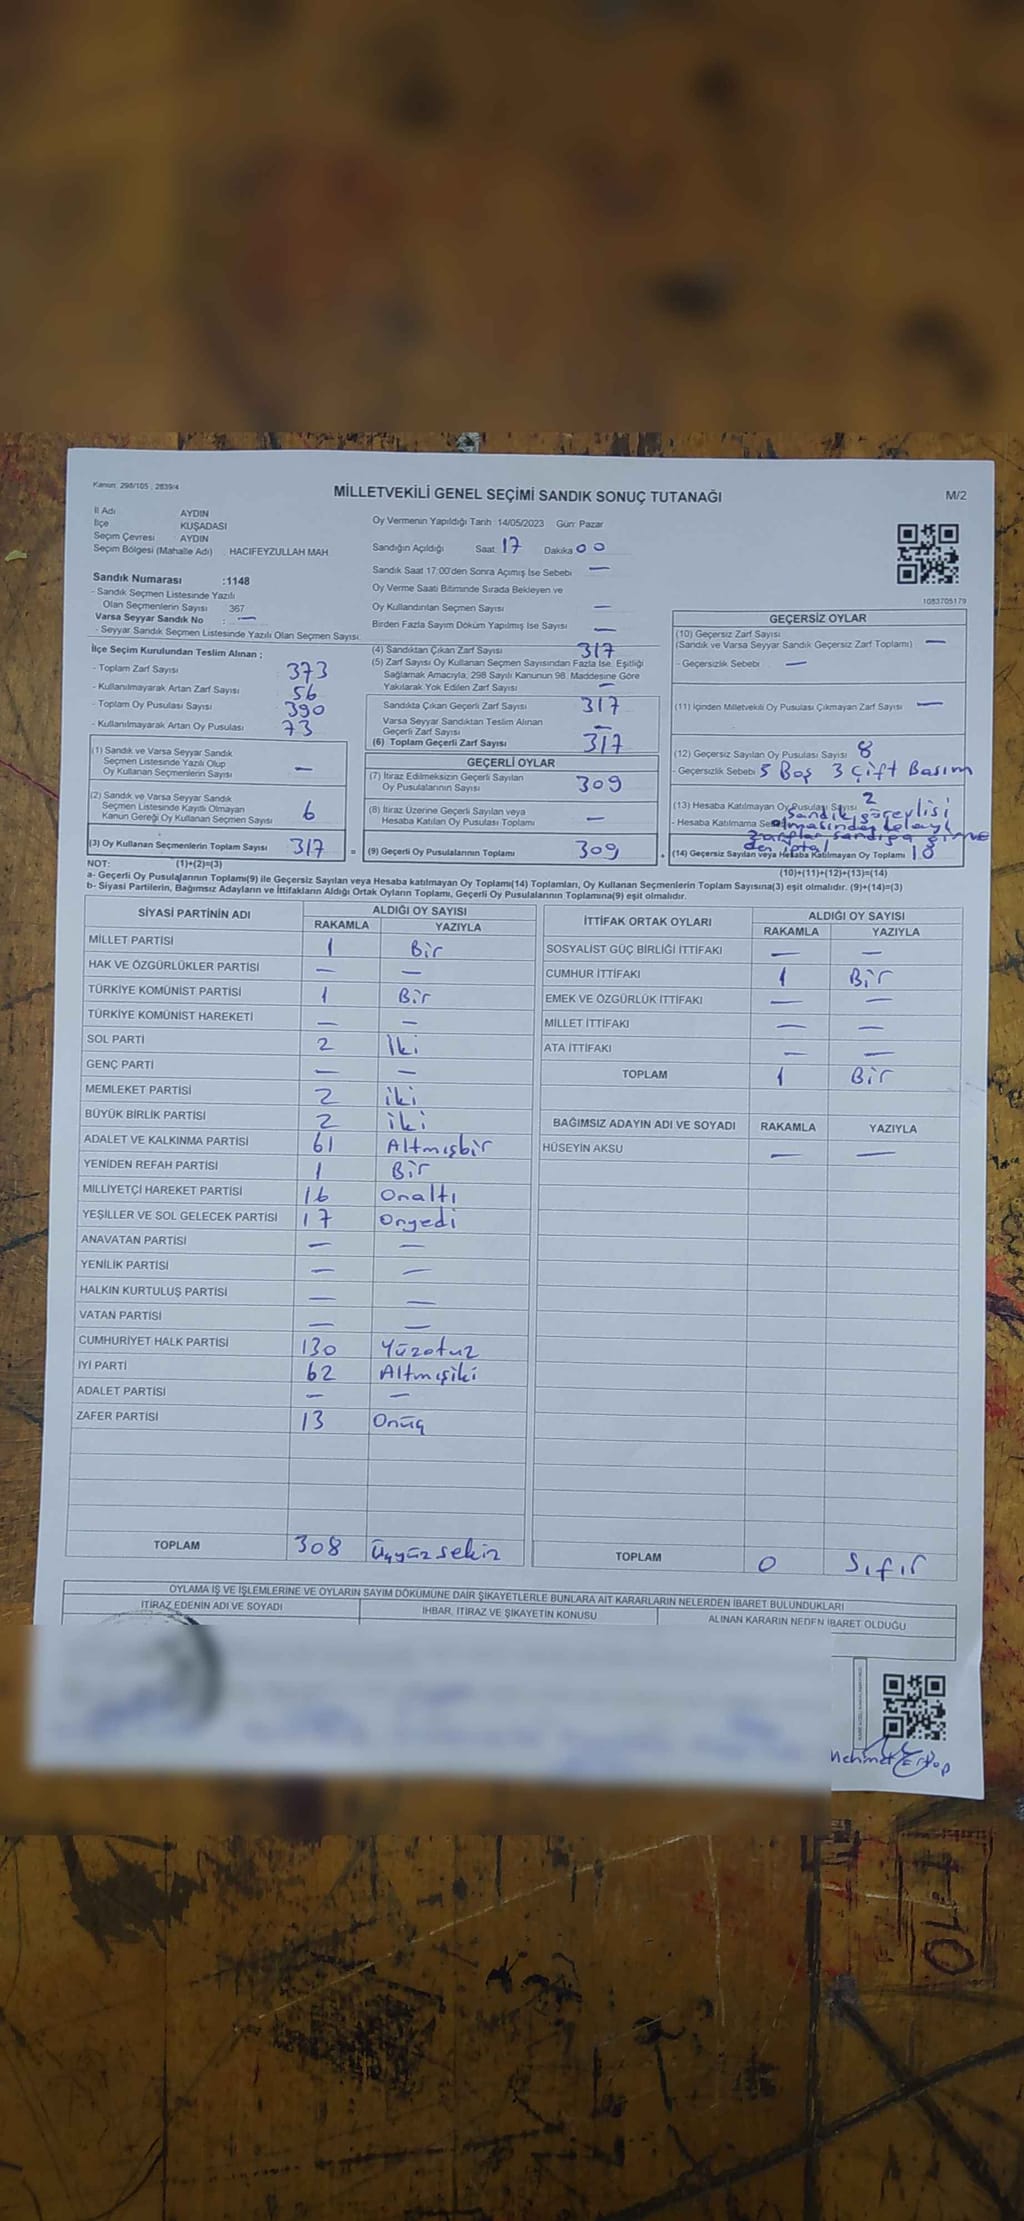 Kanun: 298/105 , 2839/4
MİLLETVEKİLİ GENEL SEÇİMİ SANDIK SONUÇ TUTANAĞI
M/2
İl Adı AYDIN
İlçe KUŞADASI
Seçim Çevresi AYDIN
Seçim Bölgesi (Mahalle Adı) HACIFEYZULLAH MAH.
Sandık Numarası :1148
- Sandık Seçmen Listesinde Yazılı
Olan Seçmenlerin Sayısı 367
Varsa Seyyar Sandık No : —
- Seyyar Sandık Seçmen Listesinde Yazılı Olan Seçmen Sayısı
Oy Vermenin Yapıldığı Tarih :14/05/2023 Gün: Pazar
Sandığın Açıldığı Saat 17 Dakika 00
Sandık Saat 17:00'den Sonra Açımış İse Sebebi —
Oy Verme Saati Bitiminde Sırada Bekleyen ve
Oy Kullandırılan Seçmen Sayısı —
Birden Fazla Sayım Döküm Yapılmış İse Sayısı —
1083705179
İlçe Seçim Kurulundan Teslim Alınan ;
- Toplam Zarf Sayısı 373
- Kullanılmayarak Artan Zarf Sayısı 56
- Toplam Oy Pusulası Sayısı 390
- Kullanılmayarak Artan Oy Pusulası 73
(1) Sandık ve Varsa Seyyar Sandık
Seçmen Listesinde Yazılı Olup
Oy Kullanan Seçmenlerin Sayısı —
(2) Sandık ve Varsa Seyyar Sandık
Seçmen Listesinde Kayıtlı Olmayan
Kanun Gereği Oy Kullanan Seçmen Sayısı 6
(3) Oy Kullanan Seçmenlerin Toplam Sayısı 317 =
(4) Sandıktan Çıkan Zarf Sayısı 317
(5) Zarf Sayısı Oy Kullanan Seçmen Sayısından Fazla İse, Eşitliği
Sağlamak Amacıyla, 298 Sayılı Kanunun 98. Maddesine Göre
Yakılarak Yok Edilen Zarf Sayısı —
Sandıkta Çıkan Geçerli Zarf Sayısı 317
Varsa Seyyar Sandıktan Teslim Alınan
Geçerli Zarf Sayısı —
(6) Toplam Geçerli Zarf Sayısı 317
GEÇERLİ OYLAR
(7) İtiraz Edilmeksizin Geçerli Sayılan
Oy Pusulalarının Sayısı 309
(8) İtiraz Üzerine Geçerli Sayılan veya
Hesaba Katılan Oy Pusulası Toplamı —
(9) Geçerli Oy Pusulalarının Toplamı 309 +
GEÇERSİZ OYLAR
(10) Geçersiz Zarf Sayısı
(Sandık ve Varsa Seyyar Sandık Geçersiz Zarf Toplamı) —
- Geçersizlik Sebebi —
(11) İçinden Milletvekili Oy Pusulası Çıkmayan Zarf Sayısı —
(12) Geçersiz Sayılan Oy Pusulası Sayısı 8
- Geçersizlik Sebebi 5 Boş 3 Çift Basım
(13) Hesaba Katılmayan Oy Pusulası Sayısı 2
Sandık görevlisi
- Hesaba Katılmama Se olmasından dolayı
zarflar sandığa girme
den iptal
(14) Geçersiz Sayılan veya Hesaba Katılmayan Oy Toplamı 10
NOT: (1)+(2)=(3)
(10)+(11)+(12)+(13)=(14)
a- Geçerli Oy Pusulalarının Toplamı(9) ile Geçersiz Sayılan veya Hesaba katılmayan Oy Toplamı(14) Toplamları, Oy Kullanan Seçmenlerin Toplam Sayısına(3) eşit olmalıdır. (9)+(14)=(3)
b- Siyasi Partilerin, Bağımsız Adayların ve İttifakların Aldığı Ortak Oyların Toplamı, Geçerli Oy Pusulalarının Toplamına(9) eşit olmalıdır.
SİYASİ PARTİNİN ADI ALDIĞI OY SAYISI
RAKAMLA YAZIYLA
MİLLET PARTİSİ 1 Bir
HAK VE ÖZGÜRLÜKLER PARTİSİ — —
TÜRKİYE KOMÜNİST PARTİSİ 1 Bir
TÜRKİYE KOMÜNİST HAREKETİ — —
SOL PARTİ 2 İki
GENÇ PARTİ — —
MEMLEKET PARTİSİ 2 iki
BÜYÜK BİRLİK PARTİSİ 2 iki
ADALET VE KALKINMA PARTİSİ 61 Altmışbir
YENİDEN REFAH PARTİSİ 1 Bir
MİLLİYETÇİ HAREKET PARTİSİ 16 Onaltı
YEŞİLLER VE SOL GELECEK PARTİSİ 17 Onyedi
ANAVATAN PARTİSİ — —
YENİLİK PARTİSİ — —
HALKIN KURTULUŞ PARTİSİ — —
VATAN PARTİSİ — —
CUMHURİYET HALK PARTİSİ 130 Yüzotuz
İYİ PARTİ 62 Altmışiki
ADALET PARTİSİ — —
ZAFER PARTİSİ 13 Onüç
TOPLAM 308 Üçyüzsekiz
İTTİFAK ORTAK OYLARI ALDIĞI OY SAYISI
RAKAMLA YAZIYLA
SOSYALİST GÜÇ BİRLİĞİ İTTİFAKI — —
CUMHUR İTTİFAKI 1 Bir
EMEK VE ÖZGÜRLÜK İTTİFAKI — —
MİLLET İTTİFAKI — —
ATA İTTİFAKI — —
TOPLAM 1 Bir
BAĞIMSIZ ADAYIN ADI VE SOYADI RAKAMLA YAZIYLA
HÜSEYİN AKSU — —
TOPLAM 0 Sıfır
OYLAMA İŞ VE İŞLEMLERİNE VE OYLARIN SAYIM DÖKÜMÜNE DAİR ŞİKAYETLERLE BUNLARA AİT KARARLARIN NELERDEN İBARET BULUNDUKLARI
İTİRAZ EDENİN ADI VE SOYADI İHBAR, İTİRAZ VE ŞİKAYETİN KONUSU ALINAN KARARIN NEDEN İBARET OLDUĞU
Mehmet